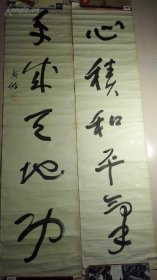 心積和平氣
手成天地功
右任